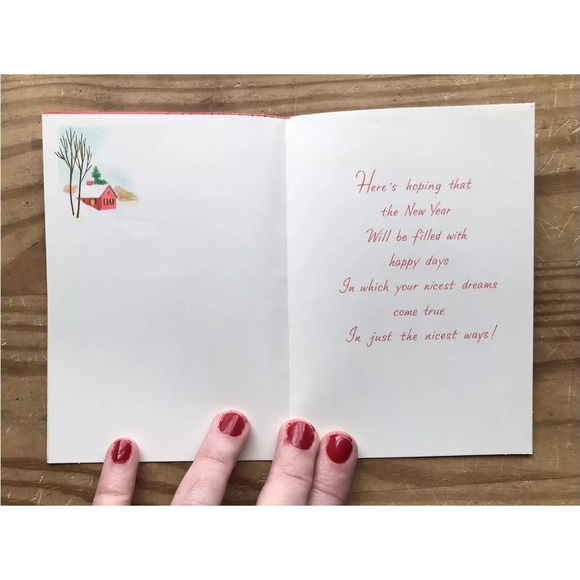 Here's hoping that
the New Year
Will be filled with
happy days
In which your nicest dreams
come true
In just the nicest ways!